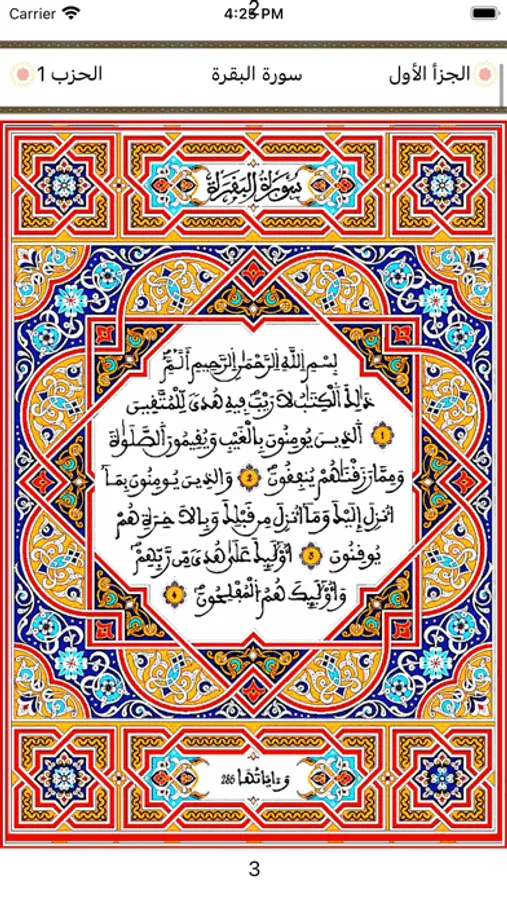 Carrier 4:25 PM
2
الجزأ الأول سورة البقرة الحزب 1
سُورَةُ الْبَقَرَةِ
بِسْمِ اللَّهِ الرَّحْمَٰنِ الرَّحِيمِ أَلَٓمِّٓ
ذَٰلِكَ الْكِتَٰبُ لَا رَيْبَ فِيهِ هُدىً لِّلْمُتَّقِينَ
1 الَّذِينَ يُومِنُونَ بِالْغَيْبِ وَيُقِيمُونَ الصَّلَوٰةَ
وَمِمَّا رَزَقْنَٰهُمْ يُنفِقُونَ 2 وَالَّذِينَ يُومِنُونَ بِمَآ
أُنزِلَ إِلَيْكَ وَمَآ أُنزِلَ مِن قَبْلِكَ وَبِالَاخِرَةِ هُمْ
يُوقِنُونَ 3 أُوْلَٰٓئِكَ عَلَىٰ هُدىً مِّن رَّبِّهِمْ
وَأُوْلَٰٓئِكَ هُمُ الْمُفْلِحُونَ 4
وَءَايَاتُهَا 286
3